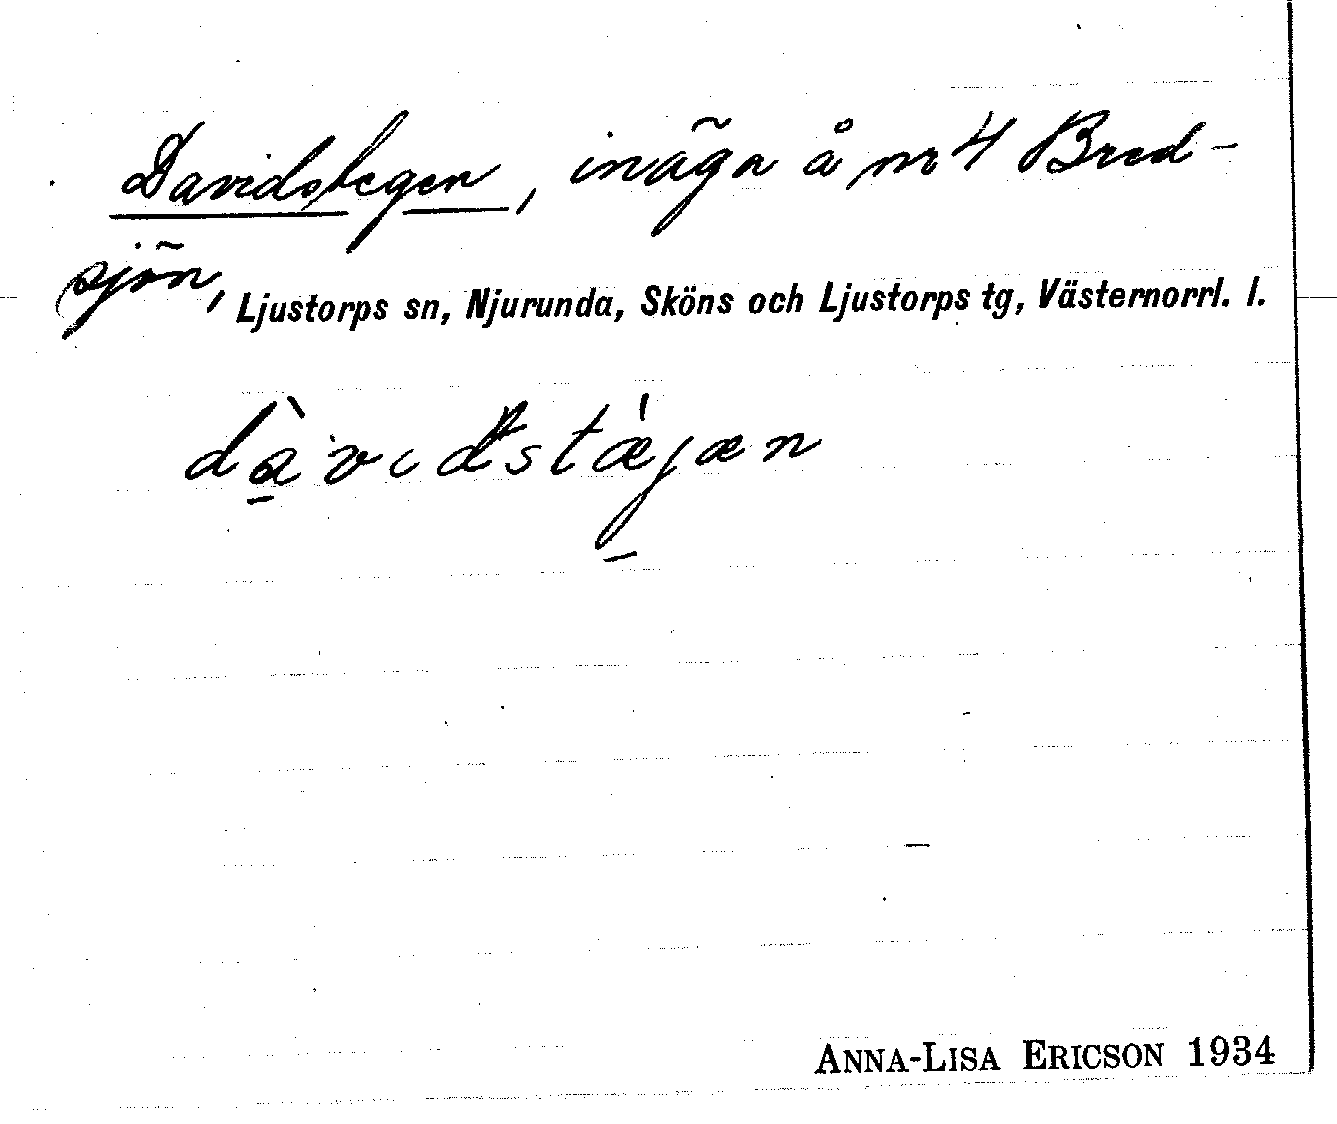 Davidstegen, inäga å nr 4 Bred-
sjön, Ljustorps sn, Njurunda, Sköns och Ljustorps tg, Västernorrl. l.
dàvidstæ̍jæn
ANNA-LISA ERICSON 1934